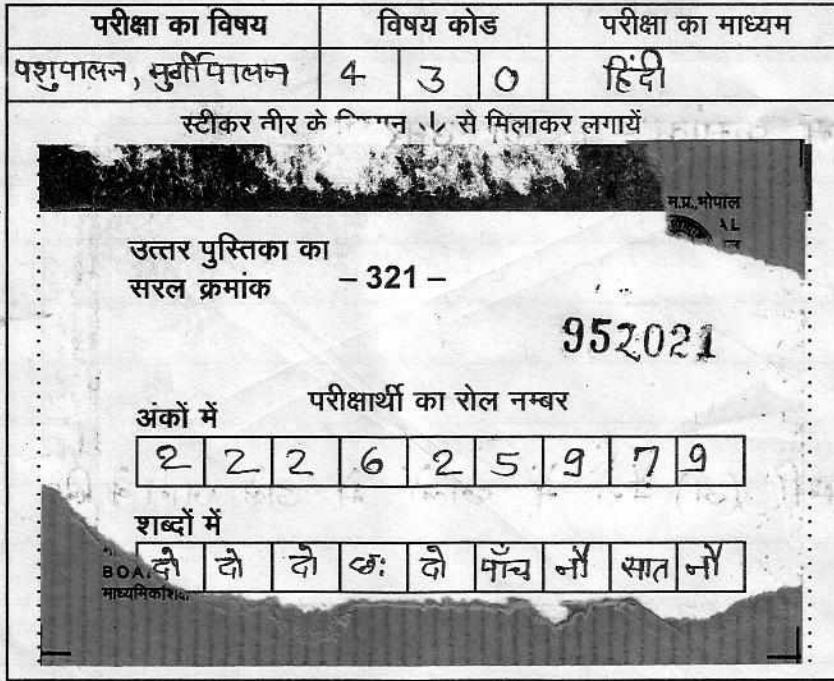 परीक्षा का विषय विषय कोड परीक्षा का माध्यम
पशुपालन, मुर्गीपालन 4 3 0 हिंदी
स्टीकर तीर के निशान ↓ से मिलाकर लगायें
म.प्र.,भोपाल
AL
उत्तर पुस्तिका का
सरल क्रमांक – 321 –
952021
परीक्षार्थी का रोल नम्बर
अंकों में
2 2 2 6 2 5 9 7 9
शब्दों में
दो दो दो छः दो पाँच नौ सात नौ
BOA
माध्यमिक